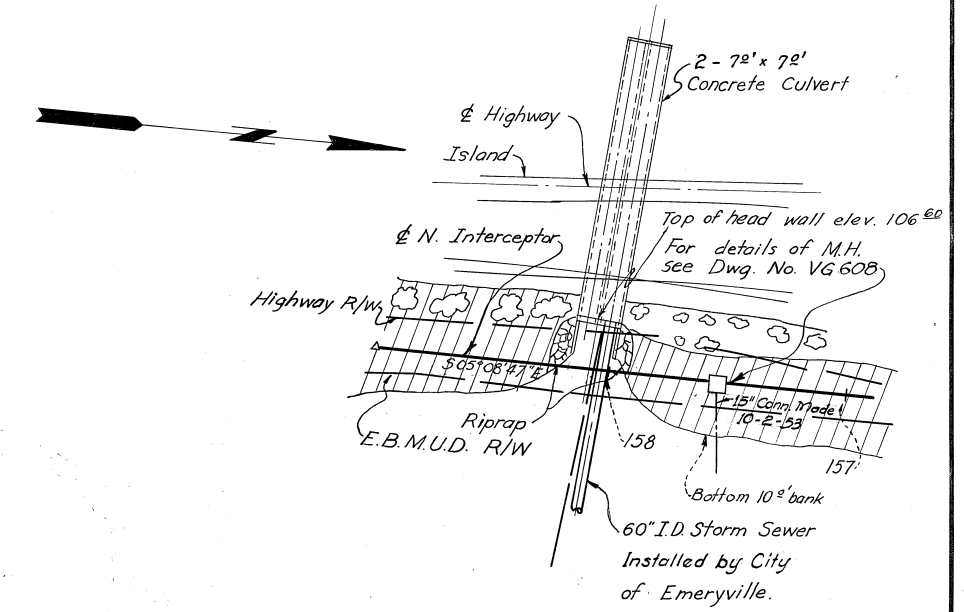 2 - 7⁰' x 7⁰'
Concrete Culvert
℄ Highway
Island
Top of head wall elev. 106 60
℄ N. Interceptor
For details of M.H.
see Dwg. No. VG 608
Highway R/W
S 05° 08' 47" E
15" Conn. Made
10-2-53
Riprap
E.B.M.U.D. R/W
158
157
Bottom 10⁰' bank
60" I.D. Storm Sewer
Installed by City
of Emeryville.